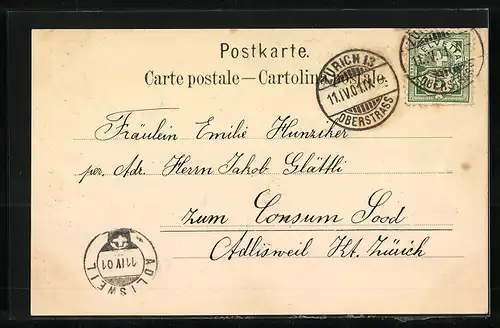 Postkarte.
Carte postale — Cartolina postale.
ZÜRICH 12
11.IV.01.IX
OBERSTRASS
Fräulein Emilie Hunziker
per, Adr. Herrn Jakob Glättli
zum Consum Sood
Adlisweil Kt. Zürich
ADLISWEIL
11 IV 01